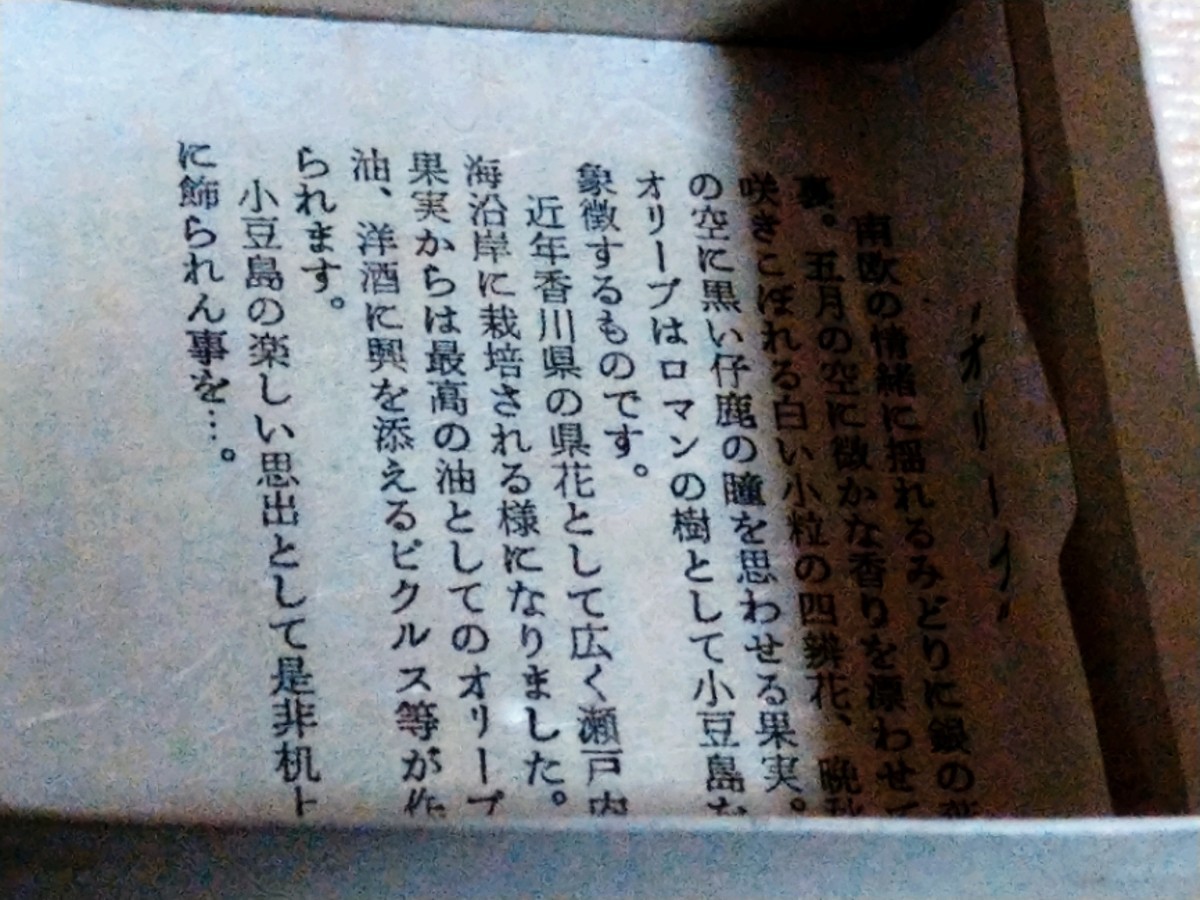 オリーブ
南欧の情緒に揺れるみどりに銀の葉
裏。五月の空に微かな香りを漂わせて
咲きこぼれる白い小粒の四辨花、晩秋
の空に黒い仔鹿の瞳を思わせる果実。
オリーブはロマンの樹として小豆島を
象徴するものです。
近年香川県の県花として広く瀬戸内
海沿岸に栽培される様になりました。
果実からは最高の油としてのオリーブ
油、洋酒に興を添えるピクルス等が作
られます。
小豆島の楽しい思出として是非机上
に飾られん事を…。